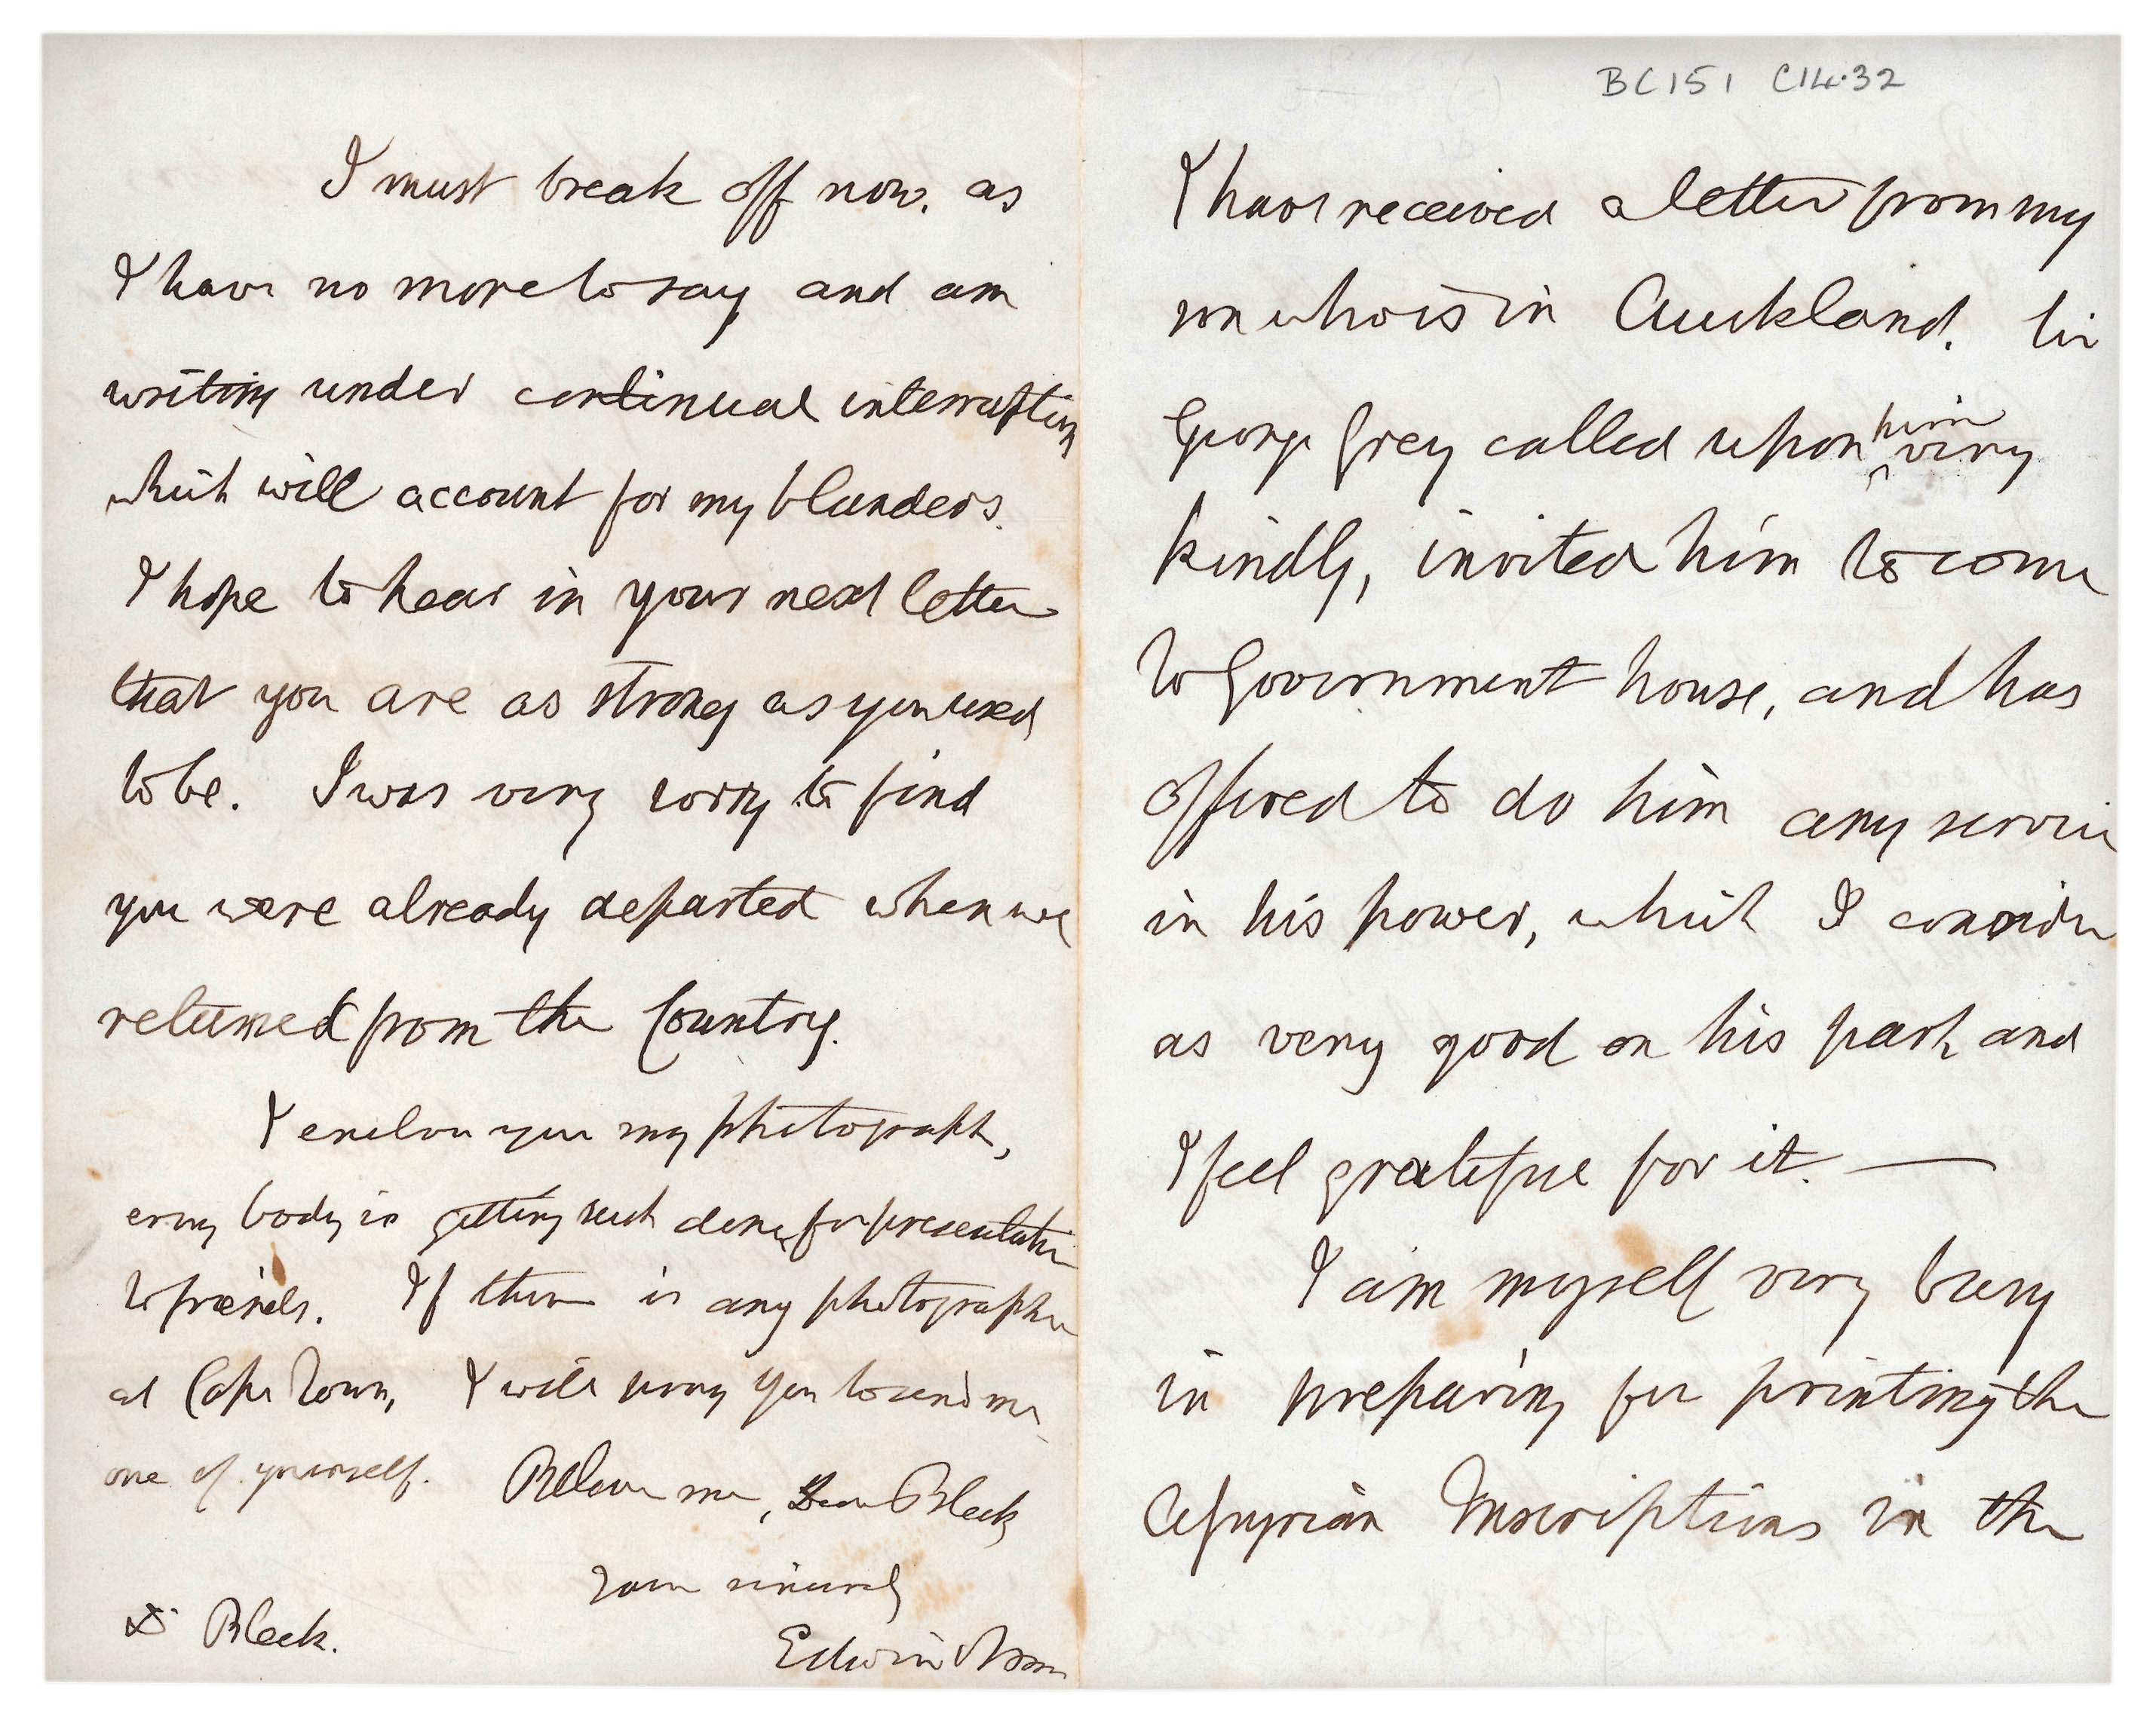 I must break off now, as
I have no more to say and am
writing under continual interruption
which will account for my blunders.
I hope to hear in your next letter
that you are as strong as you used
to be. I was very sorry to find
you were already departed when we
returned from the Country.
I enclose you my photograph,
every body is getting such done for presentation
to friends. If there is any photographer
at Cape Town, I will pray you to send me
one of yourself. Believe me, Dear Bleek
Yours sincerely
Edwin Norris
Dr Bleek.
BC151 C14.32
I have received a letter from my
son who is in Auckland. Sir
George Grey called upon him very
kindly, invited him to come
to Government house, and has
offered to do him any service
in his power, which I consider
as very good on his part and
I feel grateful for it. —
I am myself very busy
in preparing for printing the
Assyrian Inscriptions in the